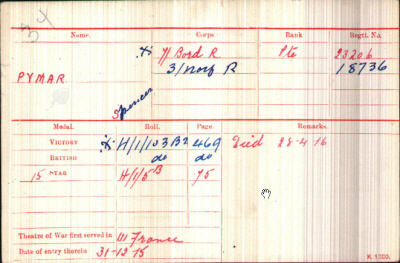 34
Name. Corps Rank Regtl. No.
X 7/ Bord R Pte 23206
PYMAR 3/Norf R 18736
Spencer
Medal. Roll. Page Remarks.
VICTORY X H/1/103B2 469 Died 28-4-16
BRITISH do do
15 STAR H/1/5B 75
Theatre of War first served in (1) France
Date of entry therein 31-12-15
K. 1380.